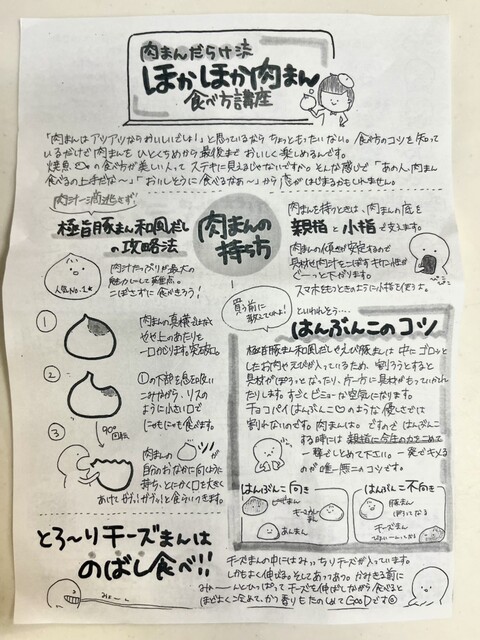 肉まんだらけ流
ほかほか肉まん
食べ方講座
「肉まんはアツアツならおいしいでしょ！」と思っているなら ちょっともったいない。食べ方のコツを知って
いるだけで 肉まんを ひとくちめから最後まで おいしく楽しめるんです。
の食べ方が美しい人って ステキに見えるじゃないですか。そんな感じで「あの人、肉まん
食べるの上手だな〜」「おいしそうに食べるなぁ〜」から 恋がはじまるかもしれません。
肉汁一滴逃さず！
極旨豚まん和風だし
の攻略法
人気No.1★
肉汁たっぷりが最大の
こぼさずに食べきろう！
肉まんの
持ち方
肉まんを持つときは、肉まんの底を
親指と小指で支えます。
肉まんの傾きが安定するので
具材や肉汁をこぼすキケン性が
ぐーっと下がります。
スマホをもつときのように小指を使う。
①
肉まんの真横
やや上のあたりを
一口かじります。
②
①の下部を息を吸い
こみながら、リスの
ように小さい口で
食べます。
③
90°回転
肉まんの
自分のおなかに向くように
持ち、とにかく口を大きく
あけてガブッ！ガブッ！と食らいつきます。
買う前に
といわれそう…
はんぶんこのコツ
極旨豚まん和風だしやえび豚まんは 中にゴロッと
したお肉やえびが入っているため、割ろうとすると
具材がぽろっとなったり、片一方に具材がもっていかれ
たりします。すごくビミョーな空気になります。
チョコパイはんぶんこ♡のような優しさでは
割れないのです。肉まんは。ですので はんぶんこ
する時には親指に全身の力をこめて
一撃でしとめて下さい。一発でキメる
のが唯一無二のコツです。
はんぶんこ向き
ピザまん
あんまん
はんぶんこ不向き
豚まん
チーズまん
とろ〜りチーズまんは
のばし食べ!!
チーズまんの中にはみっちりチーズが入っています。
しかもよく伸びる。そしてあっつあつ。かみきる前に
みぃーんとひっぱって チーズを伸ばしながら食べると
ほどよく冷めて、かつ香りもたのしめてGooDです